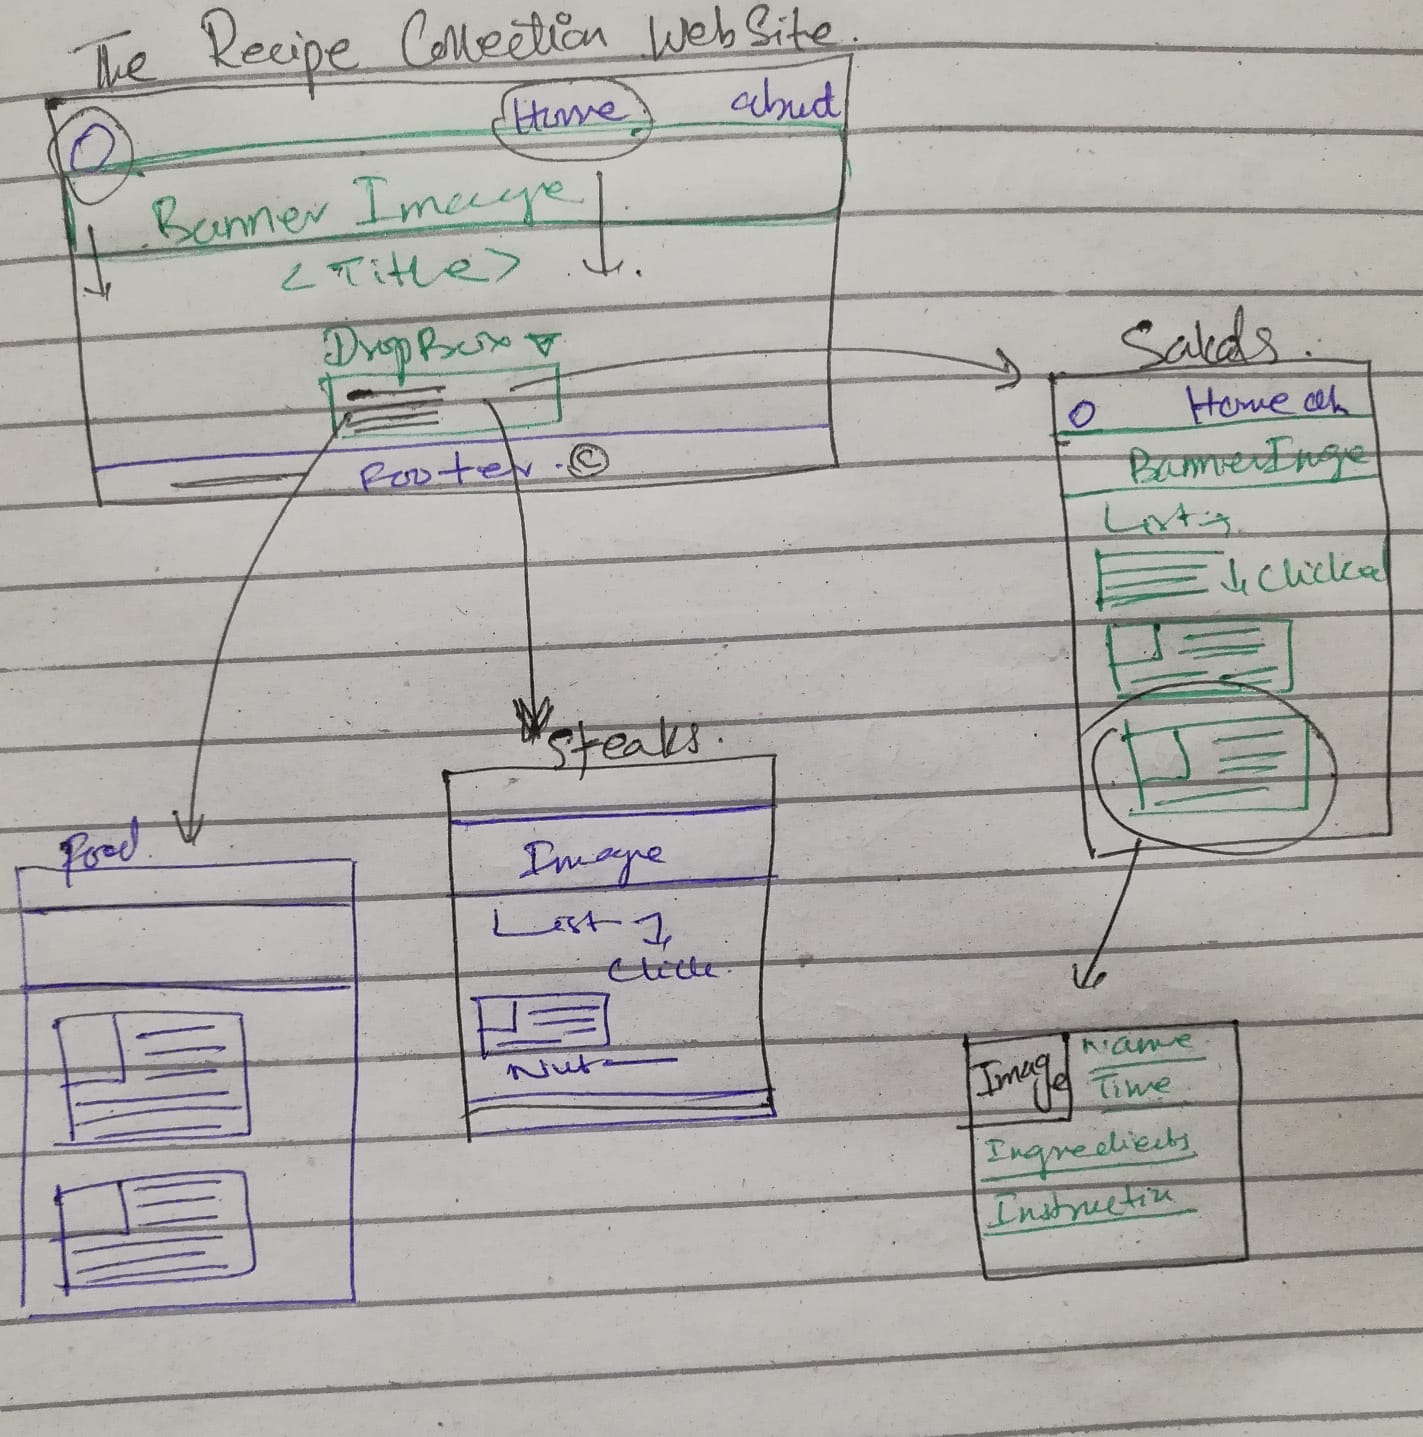 The Recipe Collection WebSite.
Home about
Banner Image
<Title>
DropBox
Footer. ©
Salads.
O Home ab
Banner Image
List
Clicked
Steaks.
Image
List
Click.
Food
Image
Name
Time
Ingredients
Instructin